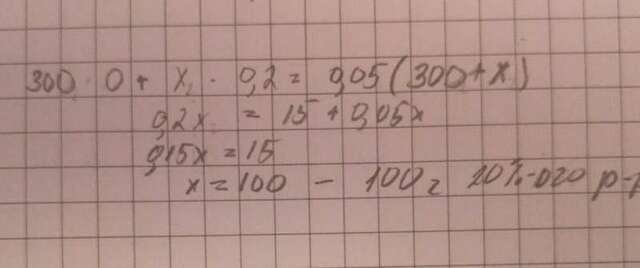 300 · 0 + x · 0,2 = 0,05(300+x)
0,2x = 15 + 0,05x
0,15x = 15
x = 100 - 100г 20%-ого р-р